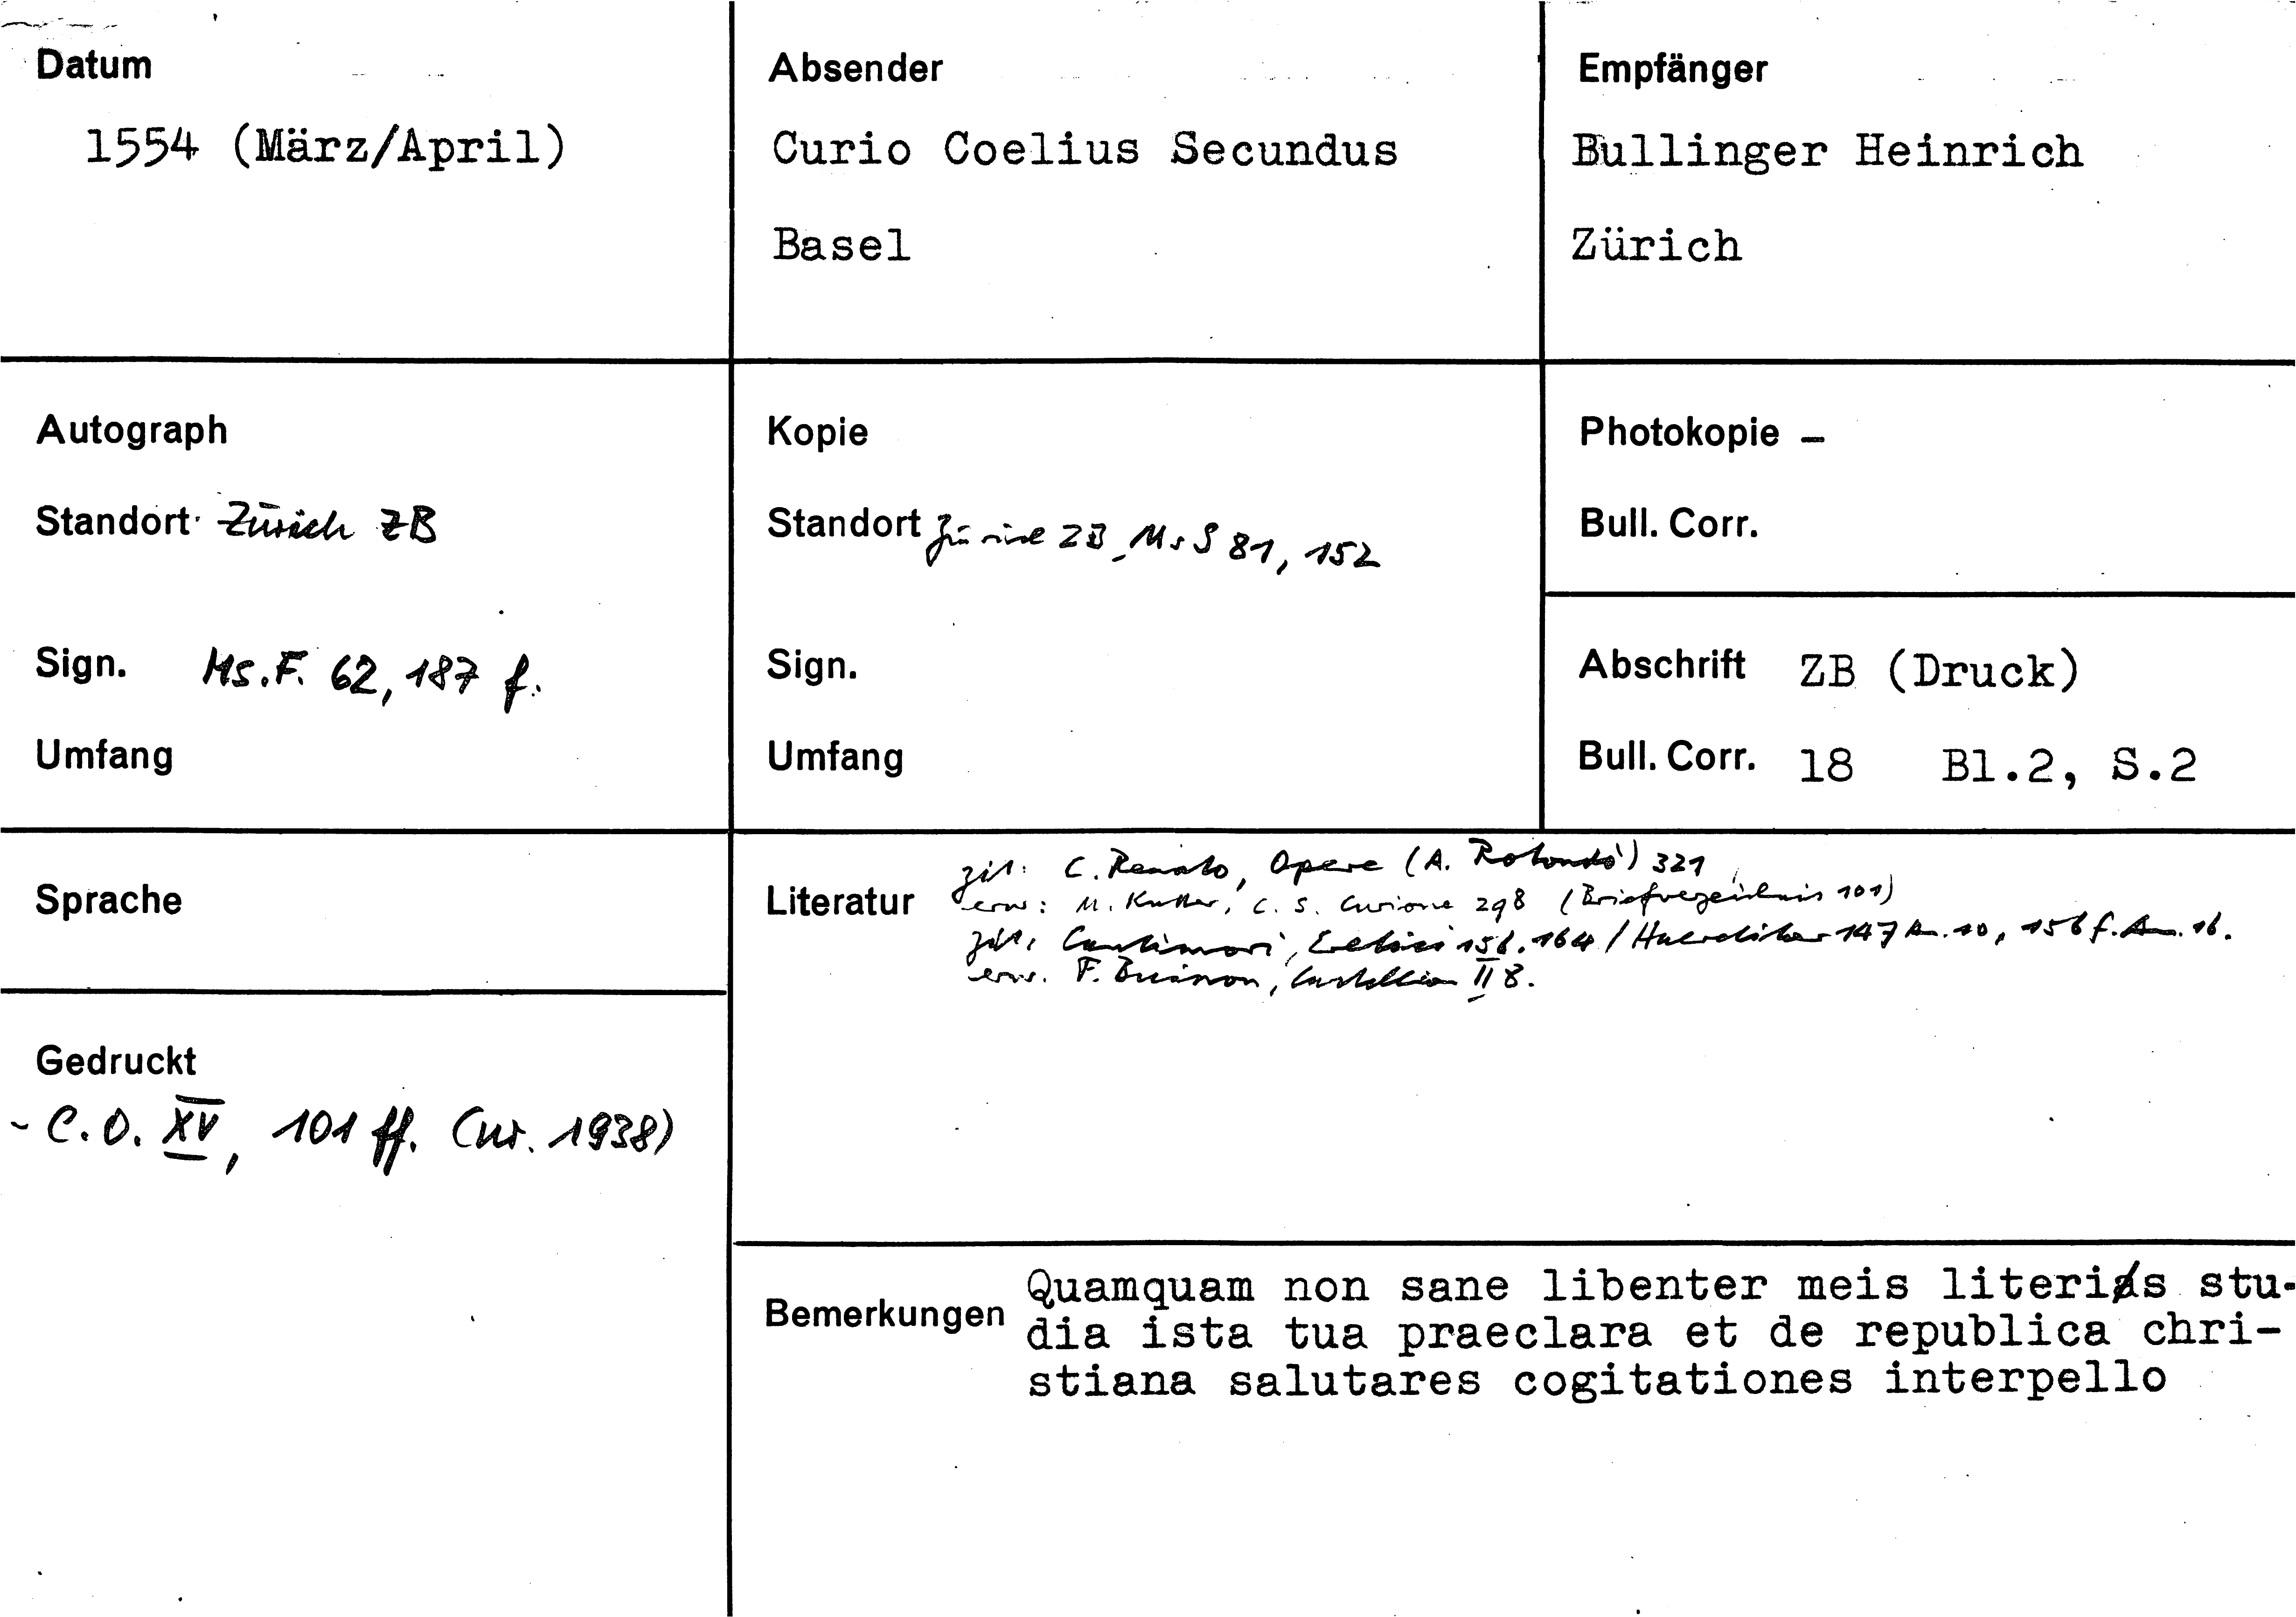 Datum
1554 (März/April)
Absender
Curio Coelius Secundus
Basel
Empfänger
Bullinger Heinrich
Zürich
Autograph
Standort Zürich ZB
Sign. Ms.F. 62, 187 f.
Umfang
Kopie
Standort Zürich ZB, Ms S 81, 152
Sign.
Umfang
Photokopie –
Bull. Corr.
Abschrift ZB (Druck)
Bull. Corr. 18 Bl.2, S.2
Sprache
Gedruckt
- C.O. XV, 101 ff. (nr. 1938)
Literatur
zit: C. Renato, Opere (A. Rotondò) 321
erw: M. Kutter, C. S. Curione 298 (Briefverzeichnis 101)
zit. Cantimori, Eretici 156. 164 / Haeretiker 147 A. 10, 156 f. A. 16.
erw. F. Buisson, Castellion II 8.
Bemerkungen
Quamquam non sane libenter meis literis stu-
dia ista tua praeclara et de republica chri-
stiana salutares cogitationes interpello